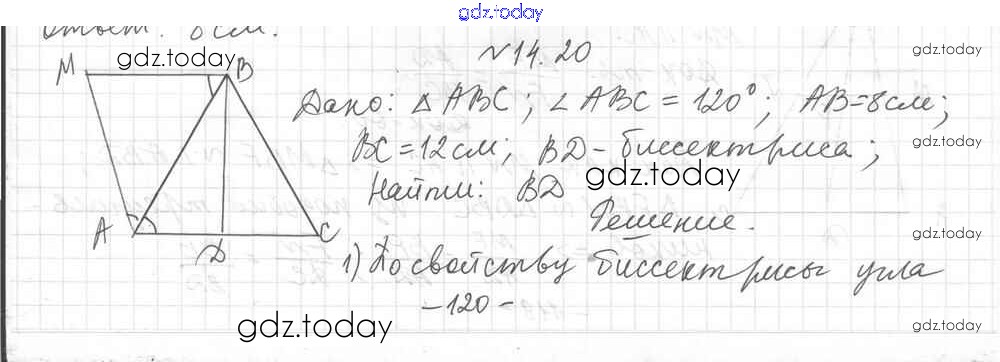 gdz.today
Ответ: 8 см.
№ 14.20
gdz.today
gdz.today
M
B
Дано: △ABC; ∠ABC = 120°; AB=8см;
BC=12см; BD - биссектриса;
gdz.today
gdz.today
Найти: BD
Решение.
A
D
C
gdz.today
1) По свойству биссектрисы угла
-120-
gdz.today
gdz.today